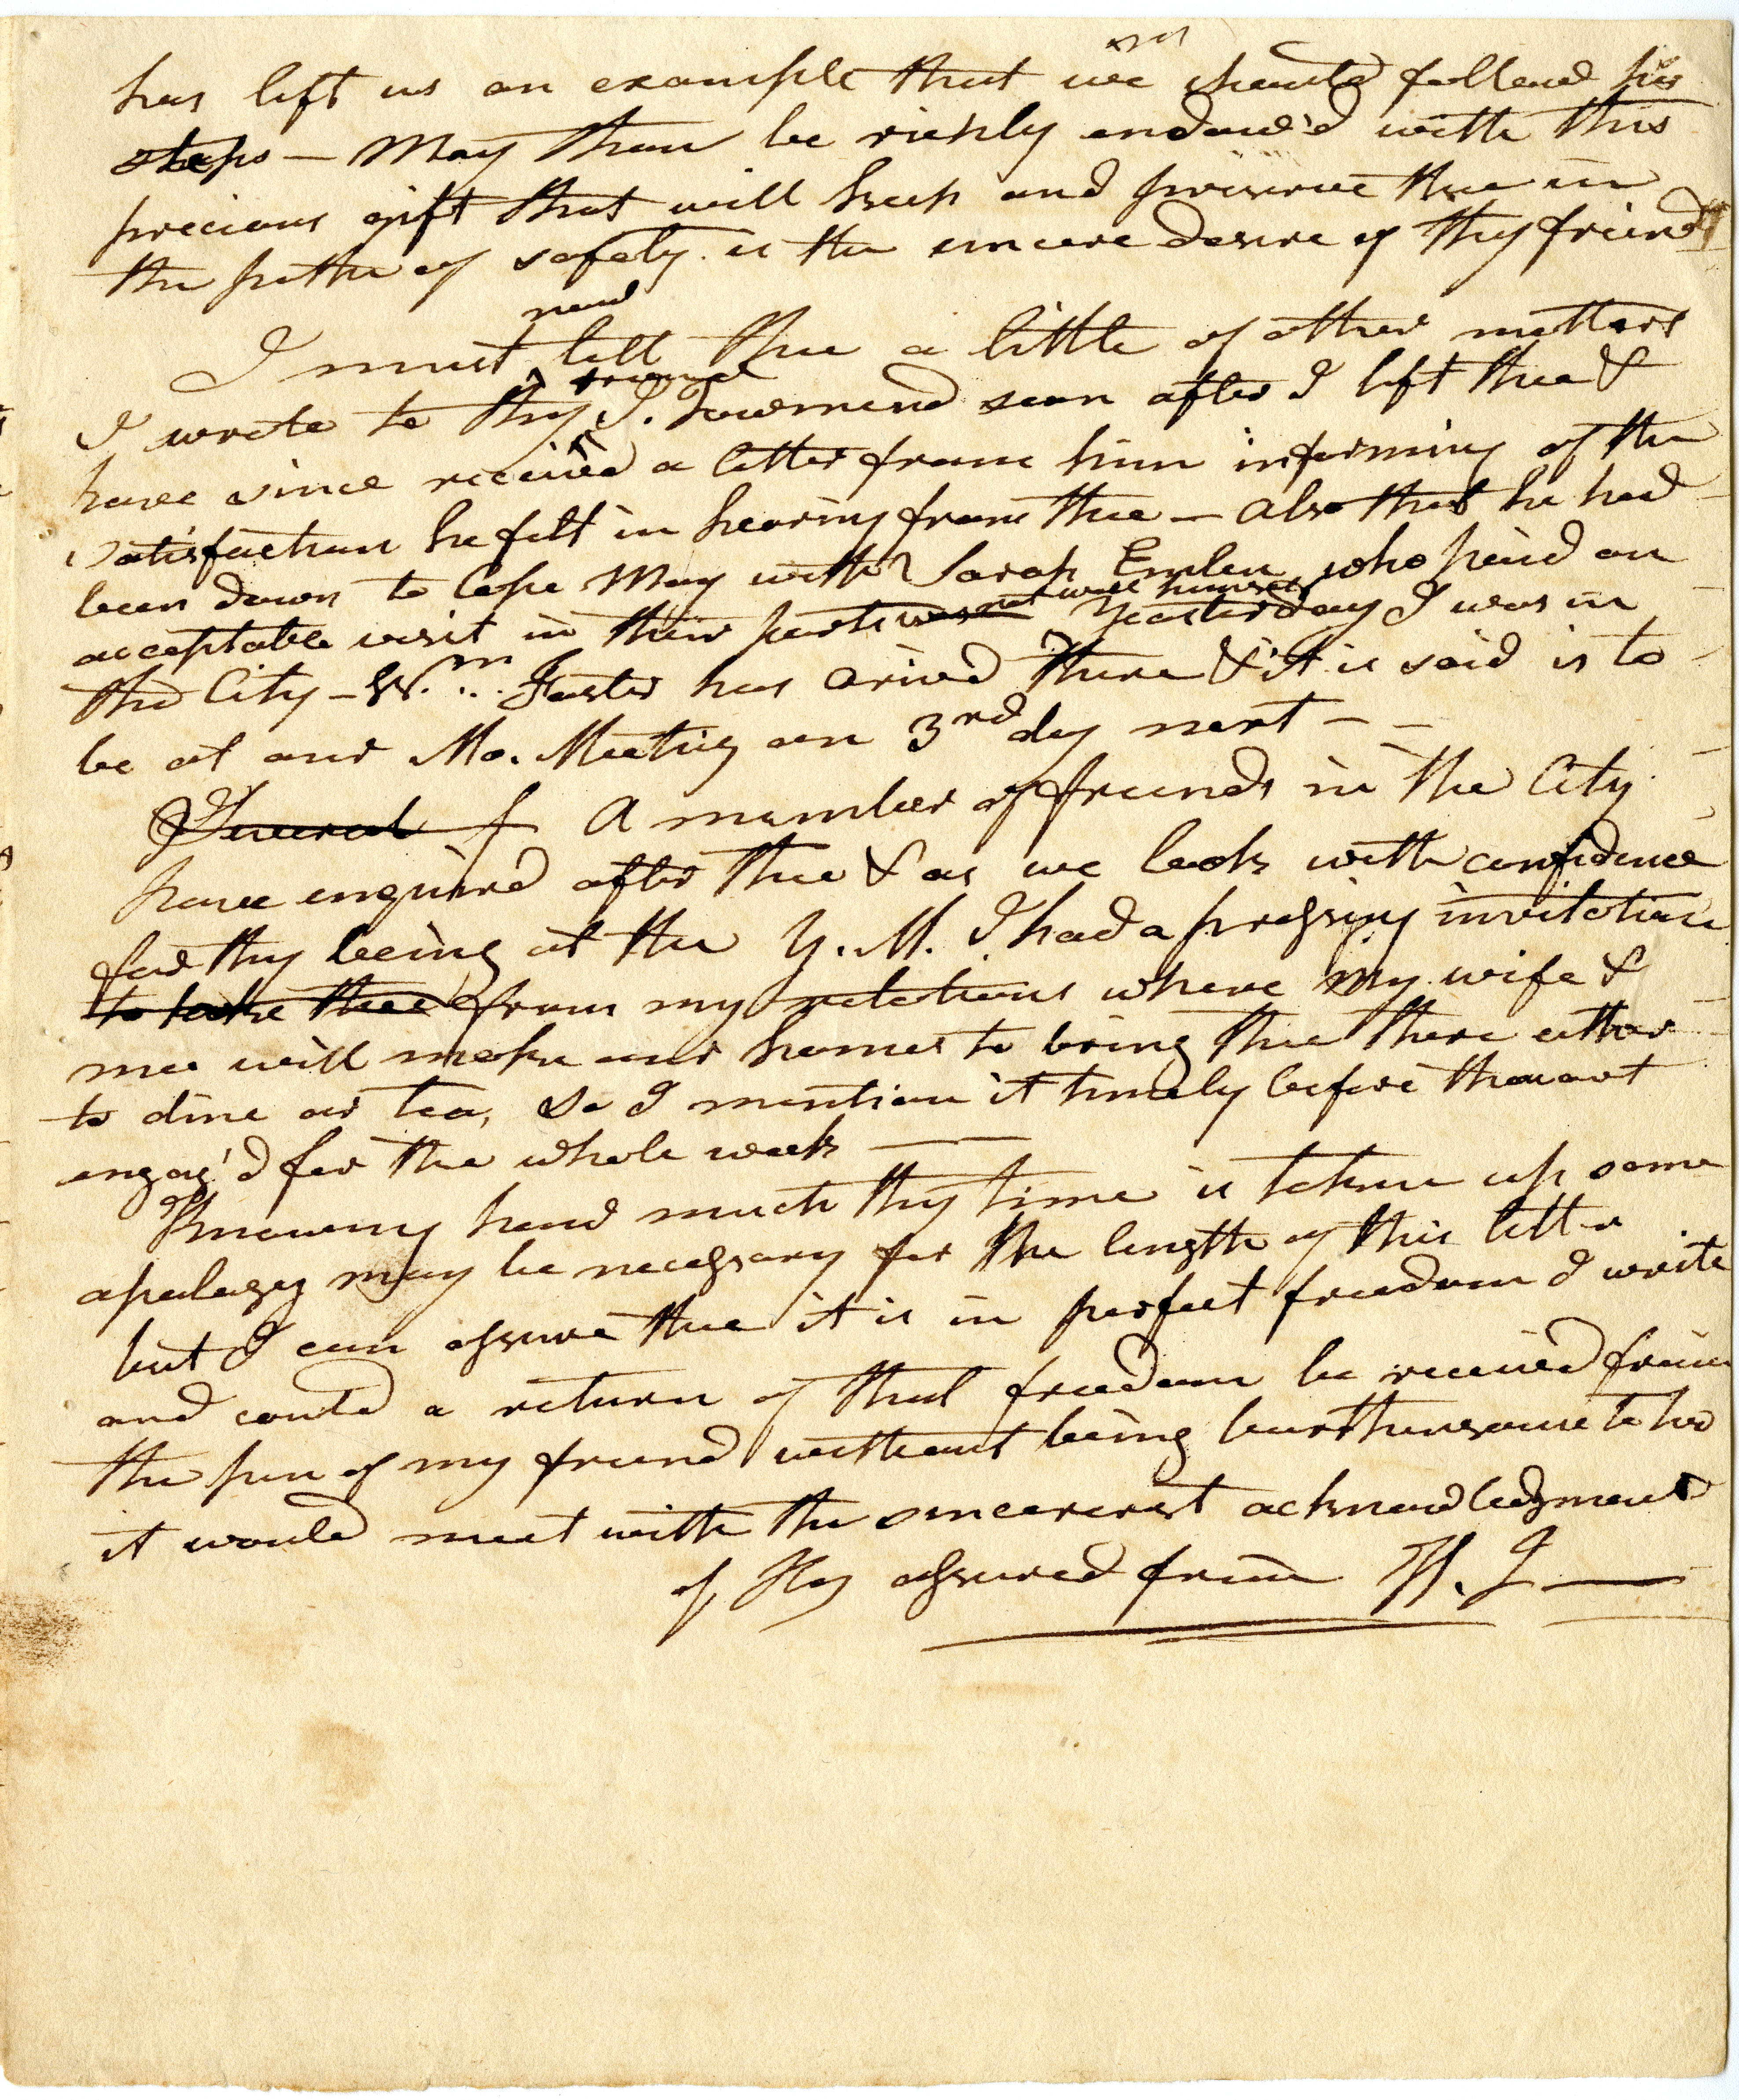 has left us an example that we should follow his
steps — May thou be richly endow'd with this
precious gift that will keep and preserve thee in
the paths of safety is the sincere desire of thy friend
now
I must tell thee a little of other matters
friend
I wrote to thy J. Townsend soon after I left thee &
have since received a letter from him informing of the
satisfaction he felt in hearing from thee — also that he had
been down to Cape May with Sarah Emlen who paid an
not well himself
acceptable visit in their parts was Yesterday I was in
the City — Wm. Foster has arived there & it is said is to
be at our Mo. Meeting on 3rd day next — —
Several f A number of friends in the City
have enquired after thee & as we look with confidence
for thy being at the Y. M. I had a pressing invitation
to take thee from my relations where my wife &
me will make our homes to bring thee there either
to dine or tea, so I mention it timely before thou art
engag'd for the whole week — —
Knowing how much thy time is taken up some
apology may be necessary for the length of this letter
but I can assure thee it is in perfect freedom I write
and could a return of that freedom be received from
the pen of my friend without being burthensome to her
it would meet with the sincerest acknowledgment
of thy assured friend H. J —